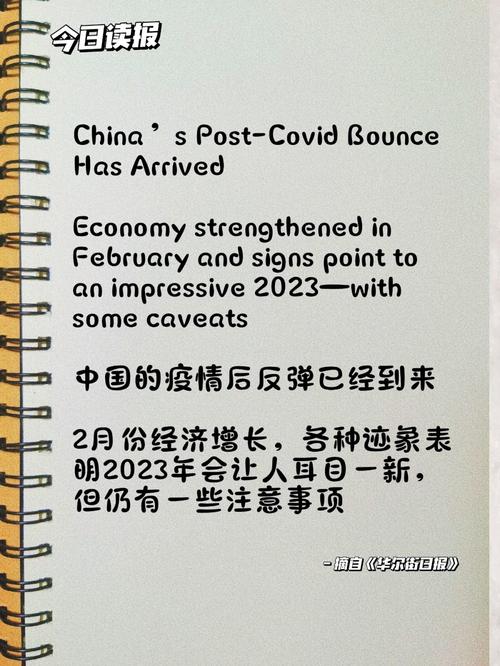 今日读报
China’s Post-Covid Bounce
Has Arrived
Economy strengthened in
February and signs point to
an impressive 2023—with
some caveats
中国的疫情后反弹已经到来
2月份经济增长，各种迹象表
明2023年会让人耳目一新，
但仍有一些注意事项
-摘自《华尔街日报》